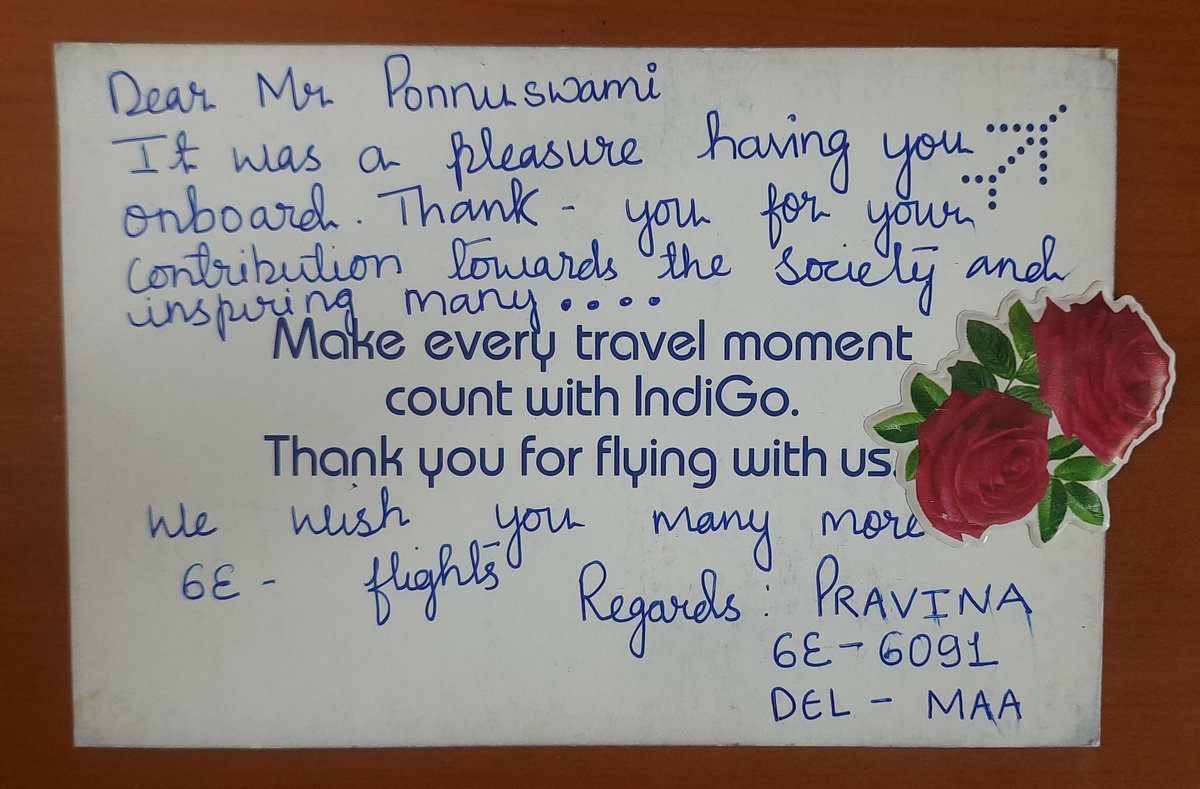 Dear Mr Ponnuswami
It was a pleasure having you
onboard. Thank - you for your
contribution towards the society and
inspiring many....
Make every travel moment
count with IndiGo.
Thank you for flying with us.
We wish you many more
6E - flights
Regards : PRAVINA
6E - 6091
DEL - MAA